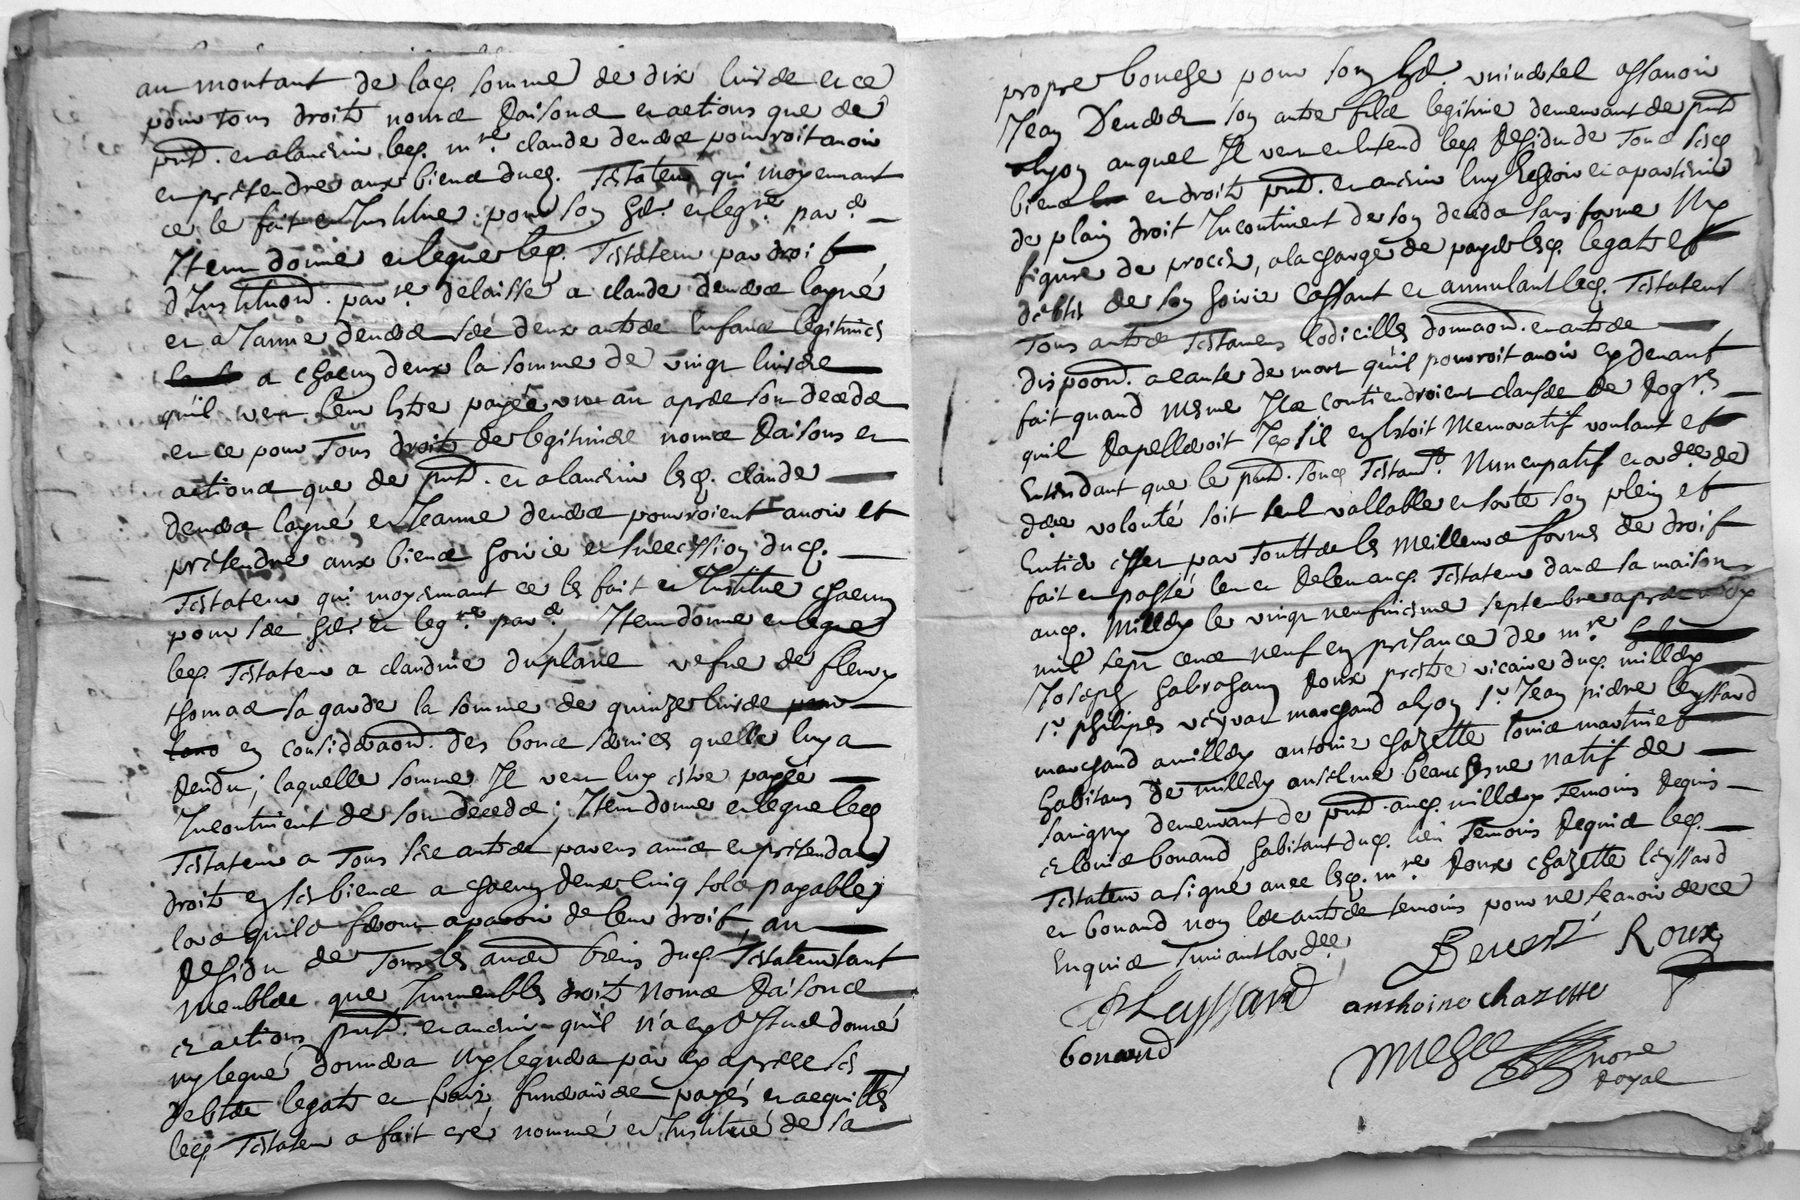 au montant de lad. somme de dix livres et ce
pour tous droits noms raisons et actions que de
pnt. et aladvenir led. mre. claude denis pourroit avoir
et prétendre aux biens dud. Testateur qui moyennant
ce le fait et Institue pour son hér. et leg.re par.er
Item donne et legue led. Testateur par droit
d'Institution par re. delaisse a claude denis layné
et a Janne denis ses deux autres Enfans legitimes
a chacun deux la somme de vingt livres
quil veut leur Estre payée un an apres son deceds
et ce pour Tous droits de legitimes noms raisons et
actions que de pnt. et aladvenir lesd. claude
denis layné et Jeanne denis pourroient avoir et
prétendre aux biens hoirie et succession dud.
Testateur qui moyennant ce les fait et Institue chacun
pour ses hér. et leg.re par.er ; Item donne et legue
led. Testateur a claudine duplane vefve de fleury
thomas sa garde la somme de quinze livres
en considéraon. des bons services quelle luy a
rendu ; laquelle somme Il veut luy estre payée
Incontinent de son deceds ; Item donne et legue led.
Testateur a Tous ses autres parens amis et prétendans
droits en ses biens a chacun deux Cinq sols payables
lors quils feront aparoir de leur droit, au
résidu de Tous les autres biens dud. Testateur tant
meubles que Immeubles droits noms raisons
et actions pnt. et advenir quil n'a cy dessus donné
ny legué donnera ny leguera par cy apres ses
debtes legats et frais funeraires payés et acquittés
led. Testateur a fait créé nommé et Institué de sa
propre bouche pour son hér. universel assavoir
Jean Denis son autre fils legitime demeurant de pnt
alyon auquel Il veut et entend led. résidu de Tous sesd.
biens et droits pnt. et advenir luy Eschoir et apartenir
de plain droit Incontinent de son deceds sans forme Ny
figure de procès, a la charge de payer lesd. legats et
debtes de son hoirie Cassant et annulant led. Testateur
Tous autres Testamens Codicilles donnaon. et autres
dispoon. a cause de mort quil pourroit avoir cy devant
fait quand mesme Ils contiendroient clauses de rog.res
quil rapelleroit Icy sil en Estoit Memoratif voulant et
Entendant que le pnt. sond. Testamt. Nuncupatif et ord.ere de
d.ere volonté soit seul vallable et sorte son plein et
Entier effet par toutes les meilleures formes de droit
fait et passé leu et releu aud. Testateur dans sa maison
aud. millery le vingt neufvieme septembre apres midy
mil sept cens neuf en présance de mre.
Joseph habraham roux prestre vicaire dud. millery
sr. philipes veyrat marchand alyon sr. Jean pierre leyssard
marchand a millery antoine chazette louis martinet
habitans de millery anselme beauchesne natif de
savigny demeurant de pnt. aud. millery Temoins requis
et louis bonand habitant dud. lieu Temoins requis led.
Testateur a signé avec lesd. mre. roux chazette leyssard
et bonand non les autres temoins pour ne sçavoir de ce
Enquis suivant lord.ce
Benest Roux
Leyssard anthoine chazette
bonand
notre
royal